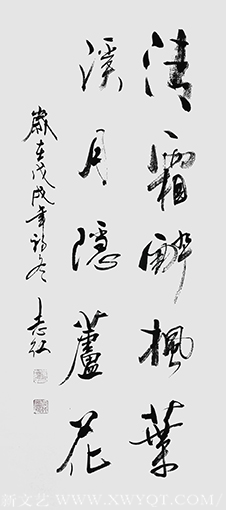 清霜醉楓葉
溪月隱蘆花
歲在戊戌年初冬 志紅
新文艺 WWW.XWYQT.COM